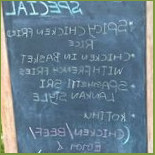 SPECIAL
• SPICY CHICKEN FRIED
RICE
• CHICKEN IN BASKET
WITH FRENCH FRIES
• SPAGHETTI SRI
LANKAN STYLE
• KOTTHU
(CHICKEN/BEEF/